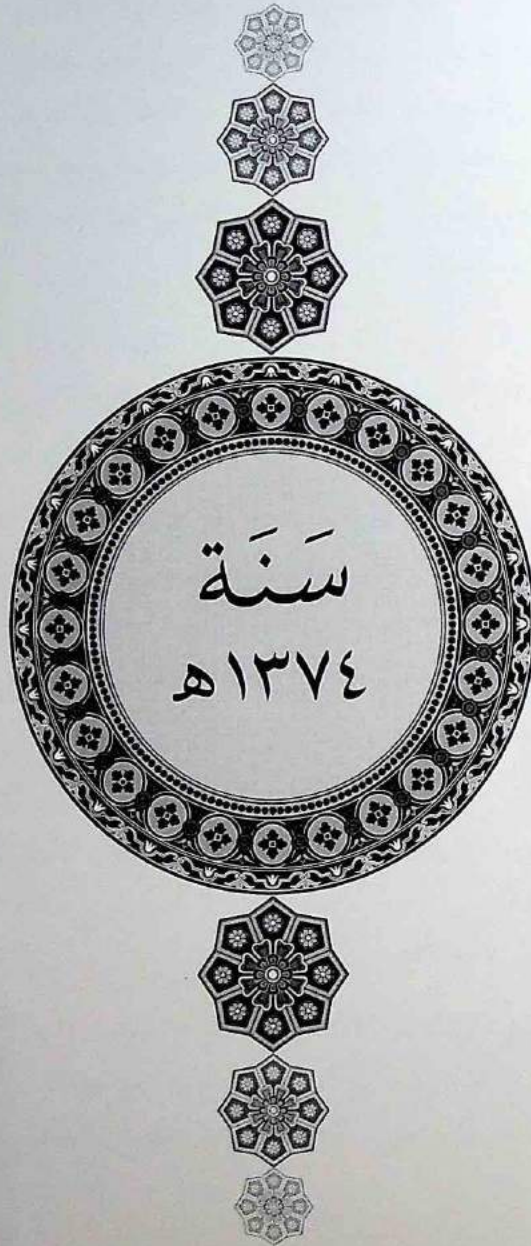 سَنَة
١٣٧٤ه